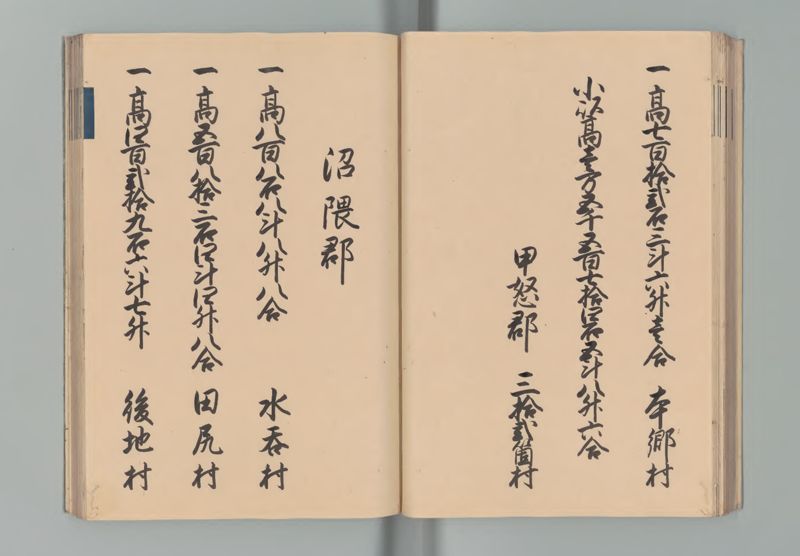 一高七百拾弐石三斗六升壱合 本郷村
小以高壱万五千五百七拾四石五斗八升六合
甲怒郡 三拾弐箇村
沼隈郡
一高八百八石八斗八升八合 水呑村
一高五百八拾二石四斗四升八合 田尻村
一高四百弐拾九石六斗七升 後地村